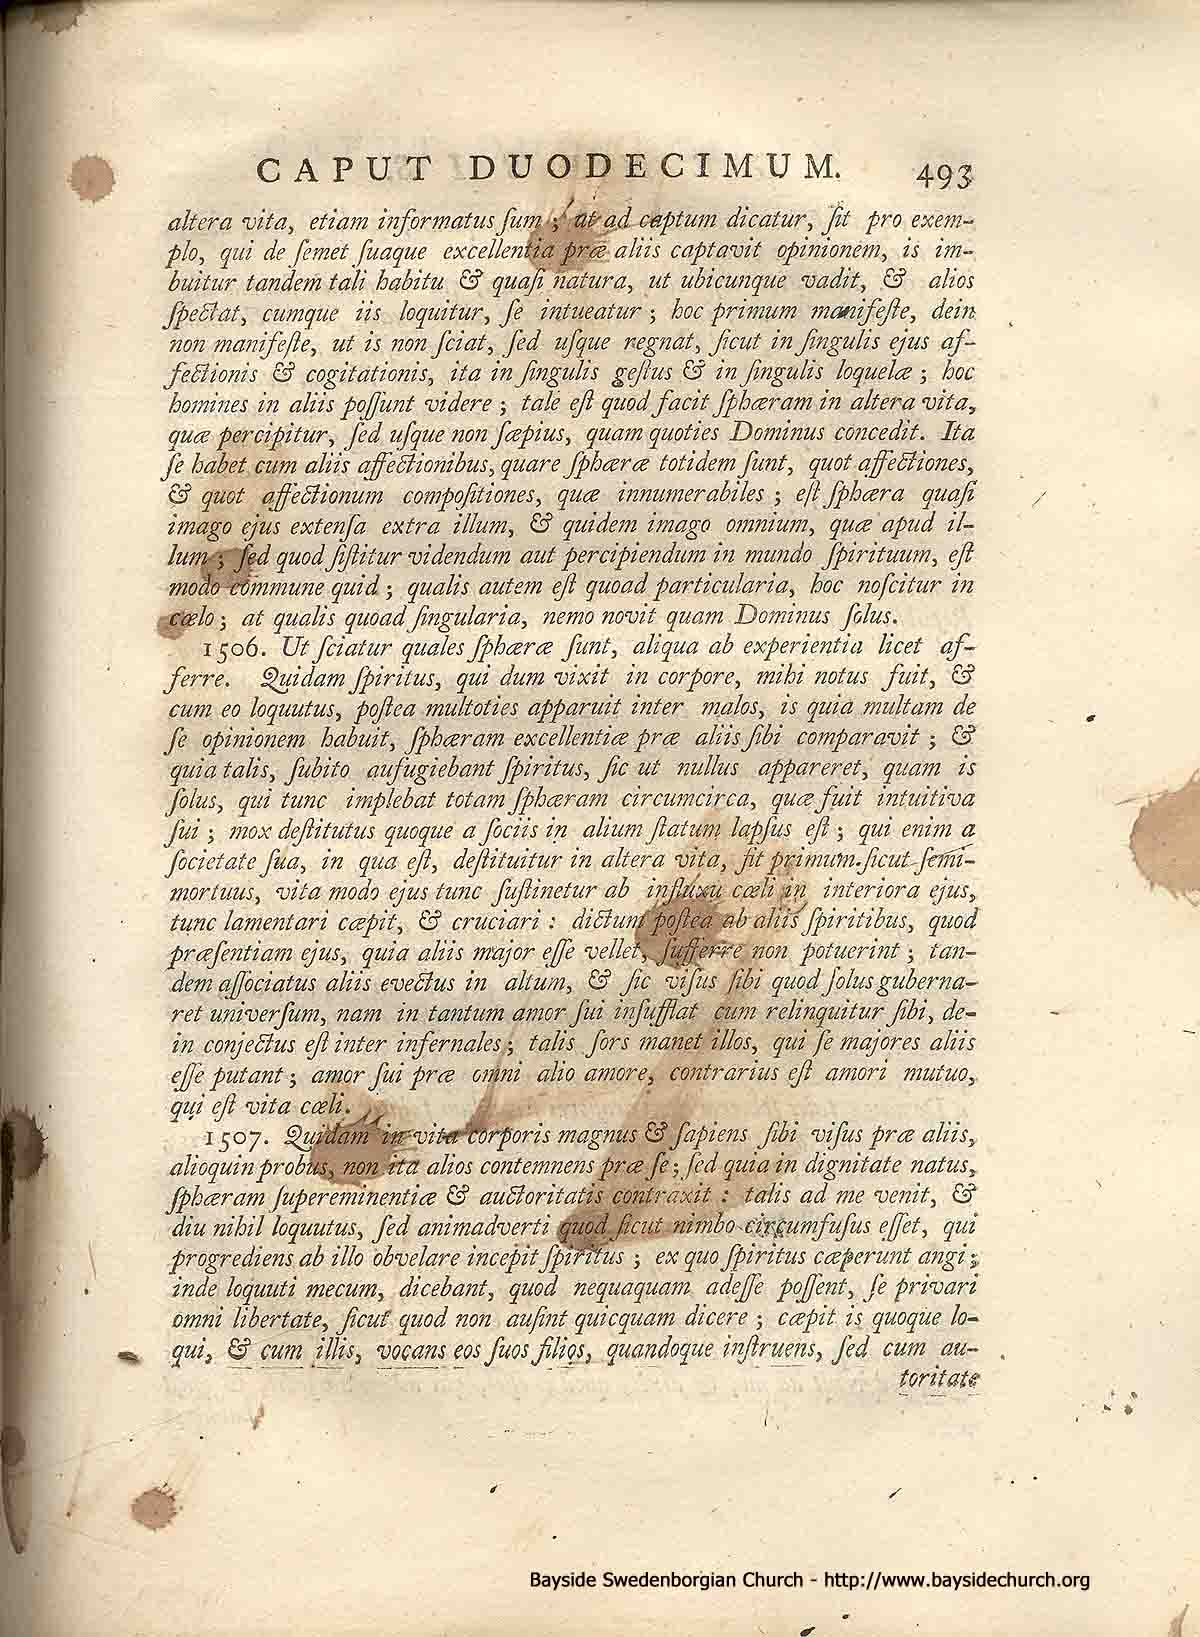 CAPUT DUODECIMUM. 493
altera vita, etiam informatus ſum; ut ad captum dicatur, ſit pro exem-
plo, qui de ſemet ſuaque excellentia præ aliis captavit opinionem, is im-
buitur tandem tali habitu & quaſi natura, ut ubicunque vadit, & alios
ſpectat, cumque iis loquitur, ſe intueatur; hoc primum manifeſte, dein
non manifeſte, ut is non ſciat, ſed uſque regnat, ſicut in ſingulis ejus af-
fectionis & cogitationis, ita in ſingulis geſtus & in ſingulis loquelæ; hoc
homines in aliis poſſunt videre; tale eſt quod facit ſphæram in altera vita,
quæ percipitur, ſed uſque non ſæpius, quam quoties Dominus concedit. Ita
ſe habet cum aliis affectionibus, quare ſphæræ totidem ſunt, quot affectiones,
& quot affectionum compoſitiones, quæ innumerabiles; eſt ſphæra quaſi
imago ejus extenſa extra illum, & quidem imago omnium, quæ apud il-
lum; ſed quod ſiſtitur videndum aut percipiendum in mundo ſpirituum, eſt
modo commune quid; qualis autem eſt quoad particularia, hoc noſcitur in
cœlo; at qualis quoad ſingularia, nemo novit quam Dominus ſolus.
1506. Ut ſciatur quales ſphæræ ſunt, aliqua ab experientia licet af-
ferre. Quidam ſpiritus, qui dum vixit in corpore, mihi notus fuit, &
cum eo loquutus, poſtea multoties apparuit inter malos, is quia multam de
ſe opinionem habuit, ſphæram excellentiæ præ aliis ſibi comparavit; &
quia talis, ſubito aufugiebant ſpiritus, ſic ut nullus appareret, quam is
ſolus, qui tunc implebat totam ſphæram circumcirca, quæ fuit intuitiva
ſui; mox deſtitutus quoque a ſociis in alium ſtatum lapſus eſt; qui enim a
ſocietate ſua, in qua eſt, deſtituitur in altera vita, fit primum ſicut ſemi-
mortuus, vita modo ejus tunc ſuſtinetur ab influxu cœli in interiora ejus,
tunc lamentari cæpit, & cruciari: dictum poſtea ab aliis ſpiritibus, quod
præſentiam ejus, quia aliis major eſſe vellet, ſufferre non potuerint; tan-
dem aſſociatus aliis evectus in altum, & ſic viſus ſibi quod ſolus guberna-
ret univerſum, nam in tantum amor ſui inſufflat cum relinquitur ſibi, de-
in conjectus eſt inter infernales; talis ſors manet illos, qui ſe majores aliis
eſſe putant; amor ſui præ omni alio amore, contrarius eſt amori mutuo,
qui eſt vita cœli.
1507. Quidam in vita corporis magnus & ſapiens ſibi viſus præ aliis,
alioquin probus, non ita alios contemnens præ ſe; ſed quia in dignitate natus,
ſphæram ſupereminentiæ & auctoritatis contraxit: talis ad me venit, &
diu nihil loquutus, ſed animadverti quod ſicut nimbo circumfuſus eſſet, qui
progrediens ab illo obvelare incepit ſpiritus; ex quo ſpiritus cæperunt angi;
inde loquuti mecum, dicebant, quod nequaquam adeſſe poſſent, ſe privari
omni libertate, ſicut quod non auſint quicquam dicere; cæpit is quoque lo-
qui, & cum illis, vocans eos ſuos filios, quandoque inſtruens, ſed cum au-
toritate
Bayside Swedenborgian Church - http://www.baysidechurch.org